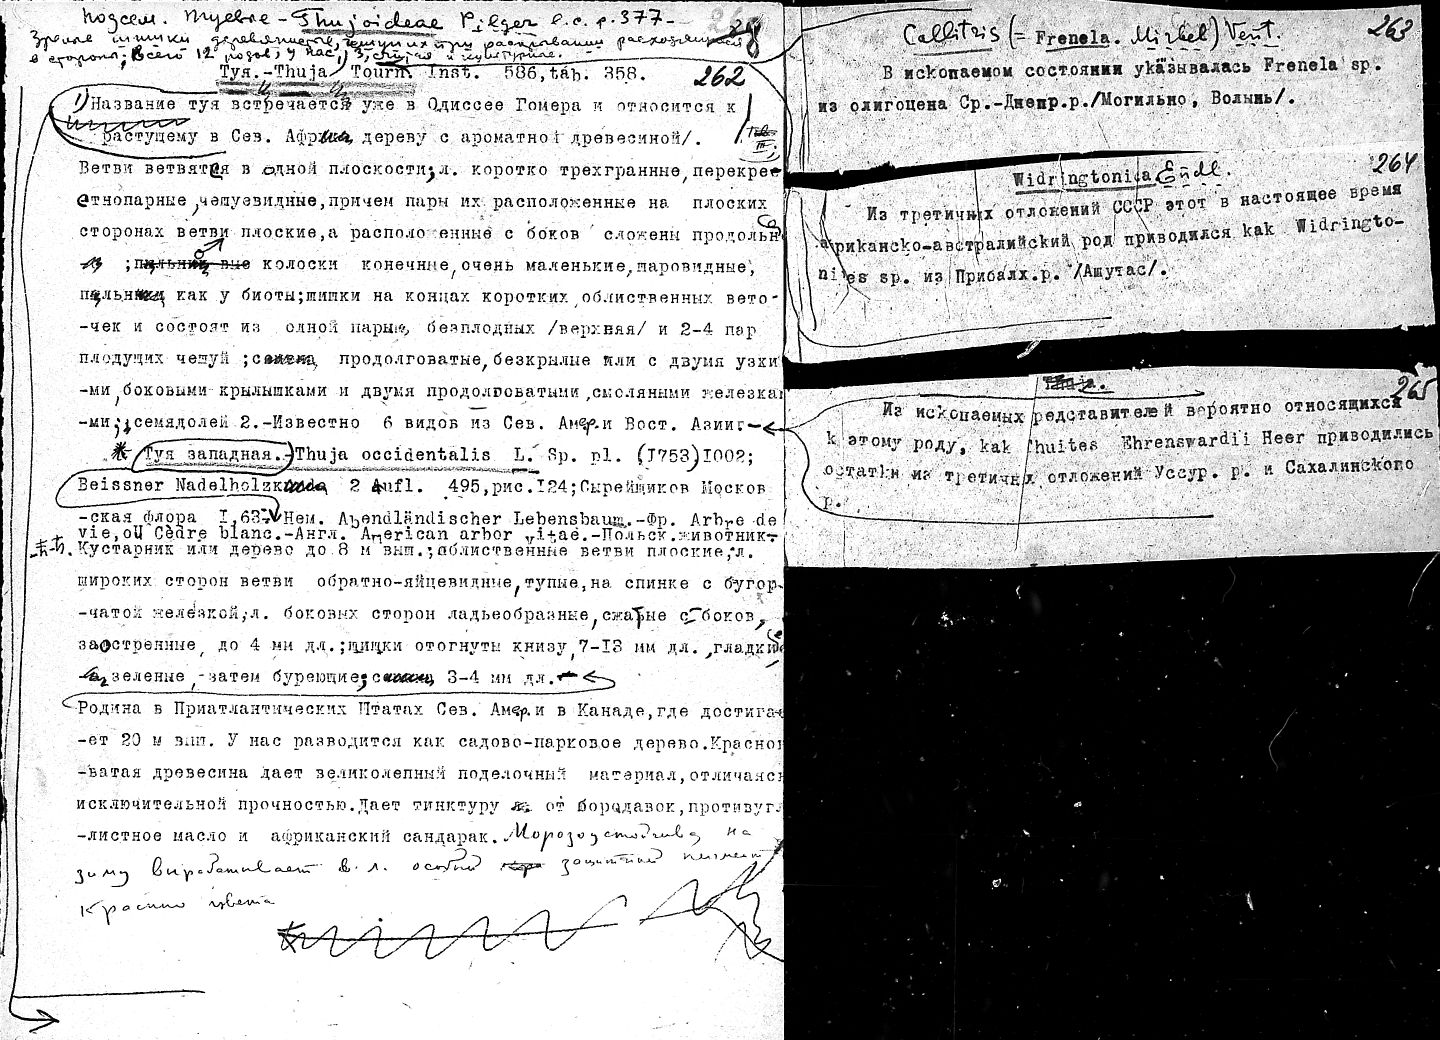 Подсем. Туевые - Thujoideae Pilger l.c. p. 377-
Зрелые шишки деревянистые, чешуи их при раскрывании расходящиеся
в стороны; Всего 12 родов, у нас 3, и
Туя.-Thuja Tourn. Inst. 586, tab. 358. 262
1) Название туя встречается уже в Одиссее Гомера и относится к
растущему в Сев. Африке дереву с ароматной древесиной/.
Ветви ветвятся в одной плоскости; л. коротко трехгранные, перекре-
стнопарные, чешуевидные, причем пары их расположенные на плоских
сторонах ветви плоские, а расположенные с боков сложены продольно
; колоски конечные, очень маленькие, шаровидные,
как у биоты; шишки на концах коротких облиственных вето-
-чек и состоят из одной пары безплодных /верхняя/ и 2-4 пар
плодущих чешуй ; семена продолговатые, безкрылые или с двумя узки
-ми, боковыми крылышками и двумя продолговатыми, смоляными железка
-ми; семядолей 2.-Известно 6 видов из Сев. Амер. и Вост. Азии
* Туя западная.-Thuja occidentalis L. Sp. pl. (1753) 1002;
Beissner Nadelholzkunde 2 Aufl. 495, рис. 124; Сырейщиков Москов
-ская флора I, 63. Нем. Abendländischer Lebensbaum.-Фр. Arbre de
vie, ou Cèdre blanc.-Англ. American arbor vitae.-Польск. животник-
Кустарник или дерево до 8 м выш.; облиственные ветви плоские, л.
широких сторон ветви обратно-яйцевидные, тупые, на спинке с бугор-
-чатой железкой, л. боковых сторон ладьеобразные, сжатые с боков,
заостренные, до 4 мм дл.; шишки отогнуты книзу, 7-13 мм дл., гладкие
зеленые, затем буреющие; семена 3-4 мм дл.
Родина в Приатлантических Штатах Сев. Амер. и в Канаде, где достига-
-ет 20 м выш. У нас разводится как садово-парковое дерево. Краснов
-ватая древесина дает великолепный поделочный материал, отличаясь
исключительной прочностью. Дает тинктуру от бородавок, противугл
-листное масло и африканский сандарак. Морозоустойчива на
зиму вырабатывает в л. особый защитный пигмент
красного цвета
Callitris (= Frenela. Mirbel) Vent. 263
В ископаемом состоянии указывалась Frenela sp.
из олигоцена Ср.-Днепр. р. /Могильно, Волынь/.
264
Widringtonica Endl.
Из третичных отложений СССР этот в настоящее время
африканско-австралийский род приводился как Widringto-
nites sp. из Прибалх. р. /Ашутас/.
Thuja. 265
Из ископаемых редставителей вероятно относящихся
к этому роду, как Thuites Ehrenswardii Heer приводились
остатки из третичных отложений Уссур. р. и Сахалинского
р.